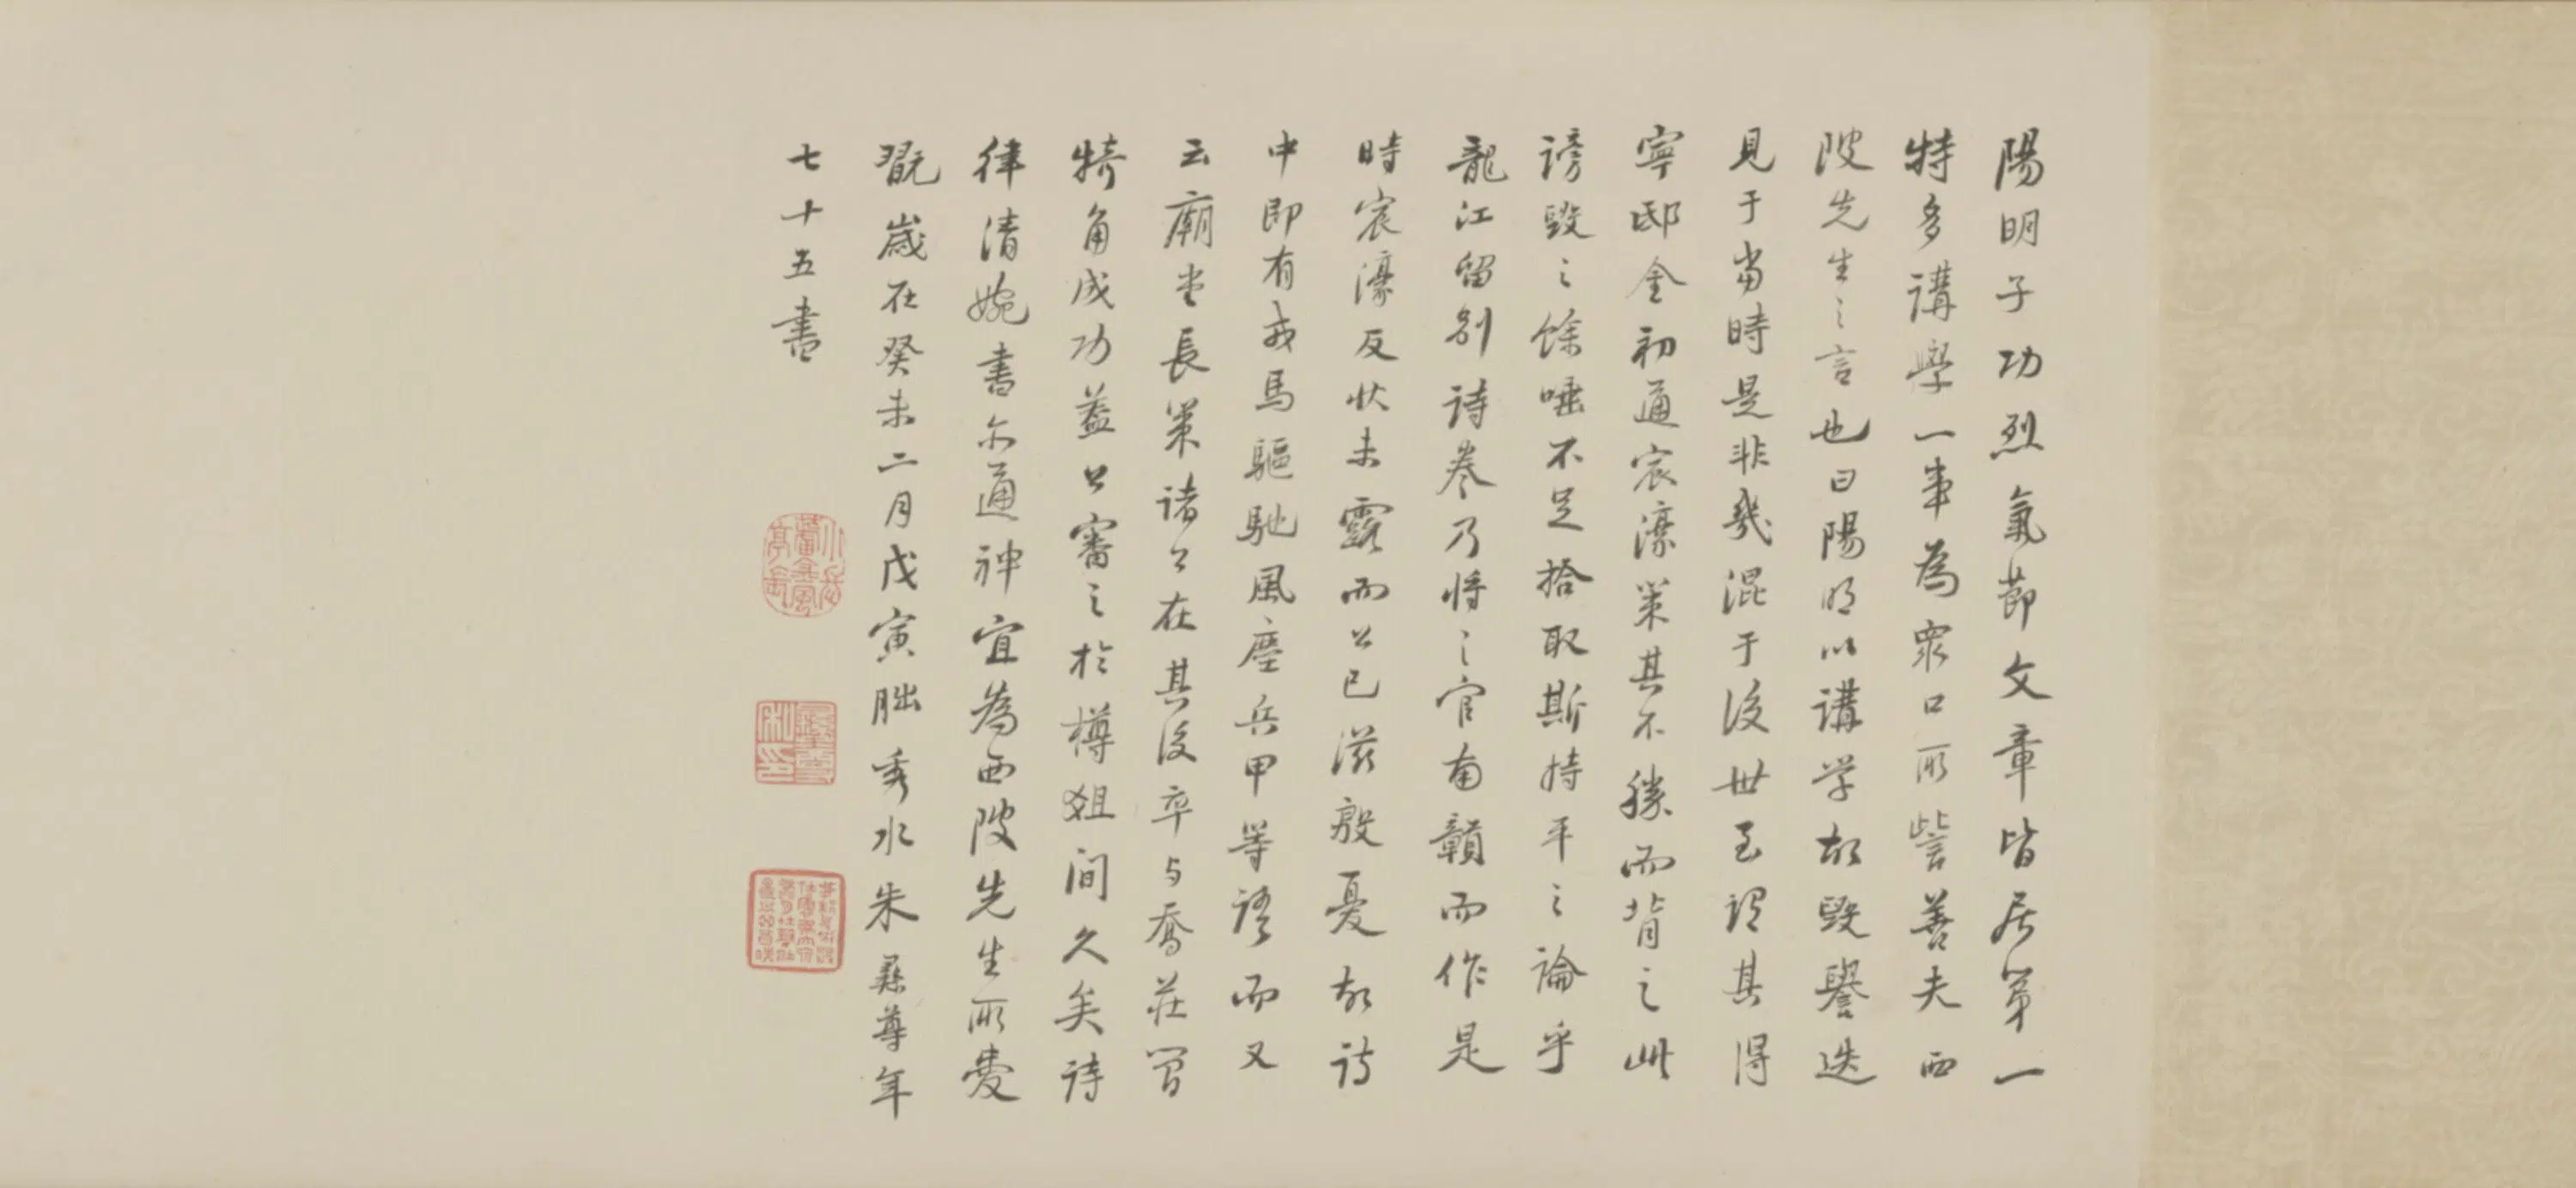 陽明子功烈氣節文章皆居第一
特多講學一事為眾口所訾善夫西
陂先生之言也曰陽明以講学故毀譽迭
見于當時是非幾混于後世至謂其得
寧邸金初通宸濠策其不勝而背之此
謗毀之餘唾不足拾取斯持平之論乎
龍江留別詩卷乃將之官南贛而作是
時宸濠反状未露而公已滋殷憂故詩
中即有戎馬驅馳風塵兵甲等語而又
云廟堂長策諸公在其後卒与喬莊簡
犄角成功蓋公審之於樽俎间久矣詩
律清婉書亦通神宜為西陂先生所愛
翫歲在癸未二月戊寅朏秀水朱彝尊年
七十五書